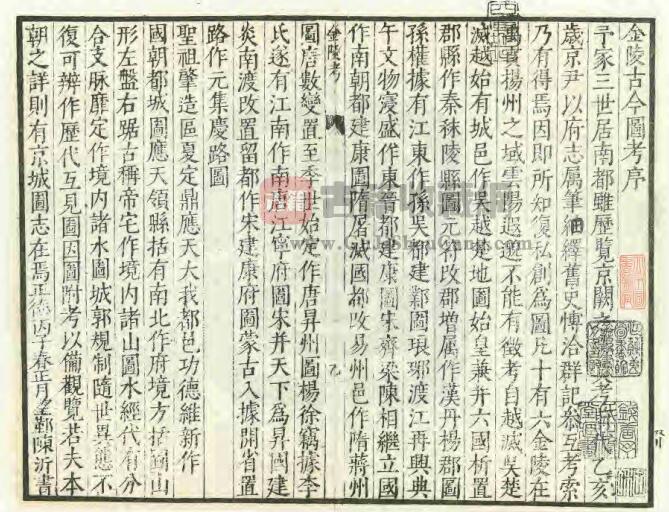 金陵古今圖考序
予家三世居南都雖歷覽京闕
歲京尹以府志属筆紬繹舊史博洽群記叅互考索
乃有得焉因即所知復私創爲圖凡十有六金陵在
禹貢揚州之域雲陽遐邈不能有徵考自越滅吳楚
滅越始有城邑作吳越楚地圖始皇兼并六國析置
郡縣作秦秣陵縣圖元符改郡增属作漢丹楊郡圖
孫權據有江東作孫吳都建鄴圖琅琊渡江再興典
午文物寖盛作東晉都建康圖宋齊梁陳相繼立國
作南朝都建康圖隋居滅國都攺易州邑作隋蔣州
圖唐數變置至季世始定作唐昇州圖楊徐竊據李
金陵考
乙
氏遂有江南作南唐江寧府圖宋并天下爲昇國建
炎南渡改置留都作宋建康府圖蒙古入據開省置
路作元集慶路圖
聖祖肇造區夏定鼎應天大我都邑功德維新作
國朝都城圖應天領縣括有南北作府境方括圖山
形左盤右踞古稱帝宅作境内諸山圖水經代有分
合支脉靡定作境内諸水圖城郭規制隨世異態不
復可辨作歷代互見圖因圖附考以備觀覽若夫本
朝之詳則有京城圖志在焉正德丙子春正月望鄞陳沂書
古籍收藏网
www.GuJiShouCang.com